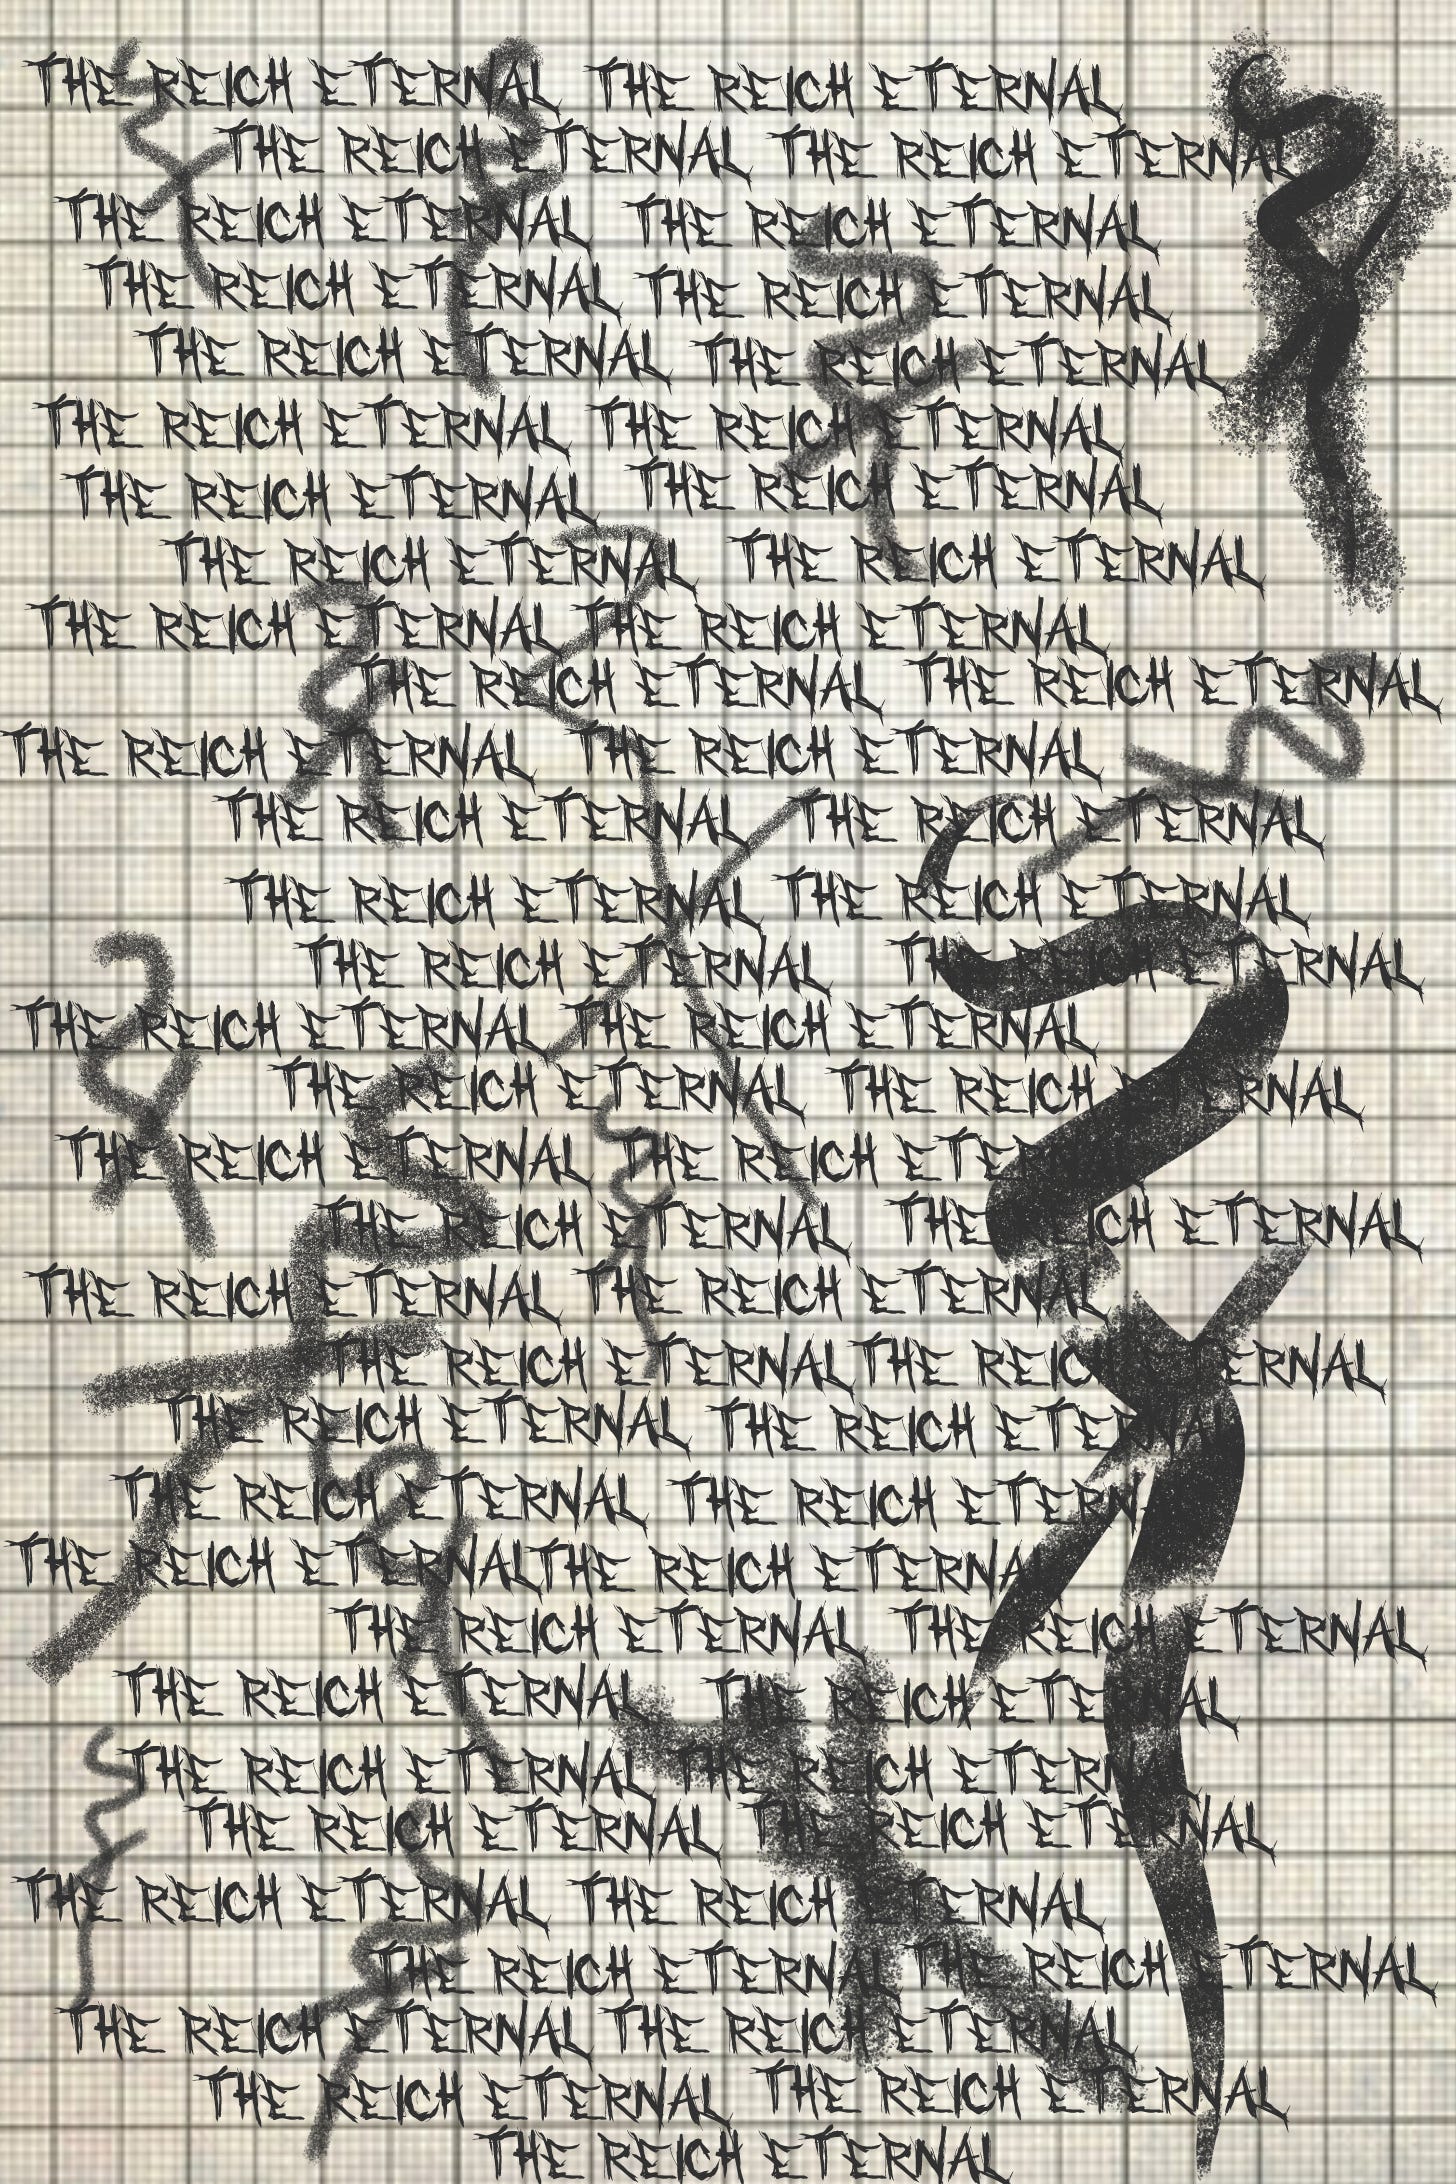 THE REICH ETERNAL THE REICH ETERNAL
THE REICH ETERNAL THE REICH ETERNAL
THE REICH ETERNAL THE REICH ETERNAL
THE REICH ETERNAL THE REICH ETERNAL
THE REICH ETERNAL THE REICH ETERNAL
THE REICH ETERNAL THE REICH ETERNAL
THE REICH ETERNAL THE REICH ETERNAL
THE REICH ETERNAL THE REICH ETERNAL
THE REICH ETERNAL THE REICH ETERNAL
THE REICH ETERNAL THE REICH ETERNAL
THE REICH ETERNAL THE REICH ETERNAL
THE REICH ETERNAL THE REICH ETERNAL
THE REICH ETERNAL THE REICH ETERNAL
THE REICH ETERNAL THE REICH ETERNAL
THE REICH ETERNAL THE REICH ETERNAL
THE REICH ETERNAL THE REICH ETERNAL
THE REICH ETERNAL THE REICH ETERNAL
THE REICH ETERNAL THE REICH ETERNAL
THE REICH ETERNAL THE REICH ETERNAL
THE REICH ETERNAL THE REICH ETERNAL
THE REICH ETERNAL THE REICH ETERNAL
THE REICH ETERNAL THE REICH ETERNAL
THE REICH ETERNAL THE REICH ETERNAL
THE REICH ETERNAL THE REICH ETERNAL
THE REICH ETERNAL THE REICH ETERNAL
THE REICH ETERNAL THE REICH ETERNAL
THE REICH ETERNAL THE REICH ETERNAL
THE REICH ETERNAL THE REICH ETERNAL
THE REICH ETERNAL THE REICH ETERNAL
THE REICH ETERNAL THE REICH ETERNAL
THE REICH ETERNAL THE REICH ETERNAL
THE REICH ETERNAL